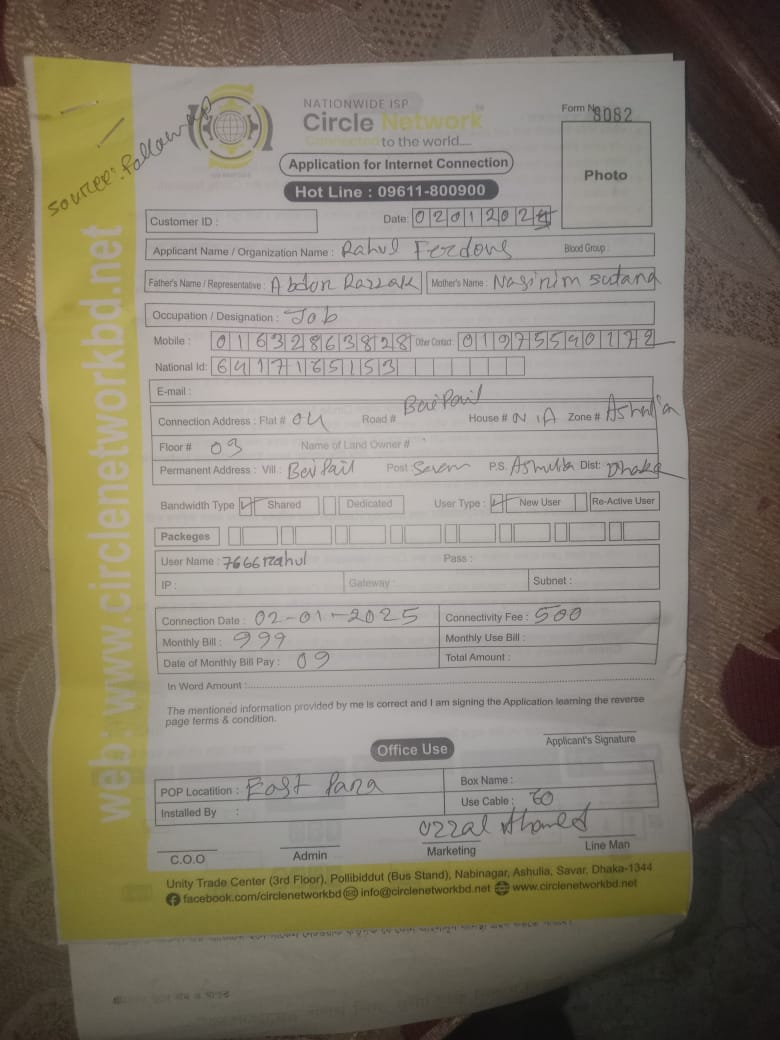 Source: Follow up
NATIONWIDE ISP
Circle Network
Connected to the world....
Form No 8082
Application for Internet Connection
Photo
Hot Line : 09611-800900
Customer ID :
Date: 0201202
Applicant Name / Organization Name : Rahul Ferdous
Blood Group :
Father's Name / Representative : Abdur Razzak
Mother's Name : Nasirim Sutana
Occupation / Designation : Job
Mobile : 01632863828 Other Contact : 01975540172
National Id: 6417165153
E-mail :
Connection Address : Flat # 04 Road # BaiPail House # N/A Zone # Ashulia
Floor # 03 Name of Land Owner #
Permanent Address : Vill : BaiPail Post Savar P.S. Ashulia Dist: Dhaka
Bandwidth Type Shared Dedicated User Type : New User Re-Active User
Packeges
User Name : 7666rahul Pass :
IP : Gateway : Subnet :
Connection Date : 02-01-2025 Connectivity Fee : 500
Monthly Bill : 999 Monthly Use Bill :
Date of Monthly Bill Pay : 09 Total Amount :
In Word Amount :
The mentioned information provided by me is correct and I am signing the Application learning the reverse
page terms & condition.
Applicant's Signature
Office Use
POP Locatition : East Para Box Name :
Installed By : Use Cable : 60
Uzzal Ahamed
C.O.O Admin Marketing Line Man
Unity Trade Center (3rd Floor), Pollibiddut (Bus Stand), Nabinagar, Ashulia, Savar, Dhaka-1344
facebook.com/circlenetworkbd info@circlenetworkbd.net www.circlenetworkbd.net
web: www.circlenetworkbd.net